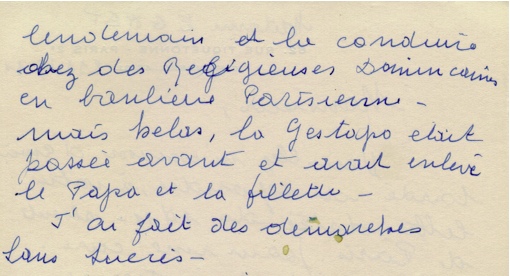 lendemain et la conduire
chez des Religieuses Dominicaines
en banlieue Parisienne -
mais helas, la Gestapo etait
passée avant et avait enlevé
le Papa et la fillette -
J'ai fait des demarches
Sans succés -